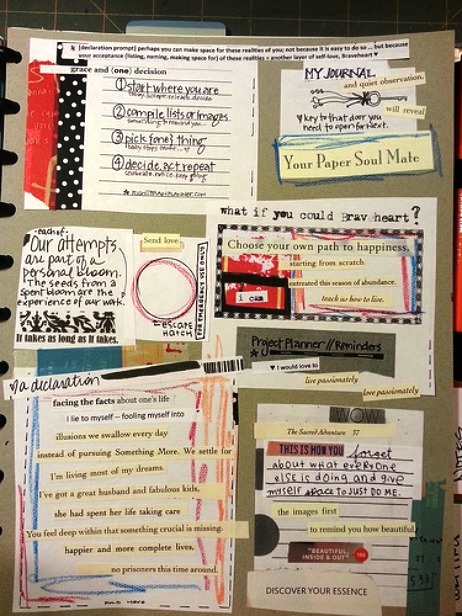 [declaration prompt] perhaps you can make space for these realities of you; not because it is easy to do so ... but because
your acceptance (listing, naming, making space for) of these realities = another layer of self-love, Braveheart ♥
grace and (one) decision
① start where you are
② compile lists or images
③ pick {one} thing
④ decide. act. repeat
MY JOURNAL
and quiet observation.
will reveal
♥ key to that door you
need to open for next.
Your Paper Soul Mate
each of
Our attempts
are part of a
personal bloom.
The seeds from a
spent bloom are the
experience of our work.
It takes as long as It takes.
Send love.
FOR EMERGENCY USE ONLY
ESCAPE
HATCH
what if you could Brav♥heart?
Choose your own path to happiness,
starting from scratch
entreated this season of abundance.
teach us how to live.
i can
Project Planner // Reminders
♥ I would love to
live passionately
love passionately
♡ a declaration
facing the facts about one's life
I lie to myself -- fooling myself into
illusions we swallow every day
instead of pursuing Something More. We settle for
I'm living most of my dreams.
I've got a great husband and fabulous kids,
she had spent her life taking care
You feel deep within that something crucial is missing.
happier and more complete lives,
no prisoners this time around.
WOW
The Sacred Adventure 37
THIS IS HOW YOU forget
about what everyone
else is doing and give
myself space to JUST DO ME.
the images first
to remind you how beautiful
"BEAUTIFUL,
INSIDE & OUT"
DISCOVER YOUR ESSENCE
NOTES